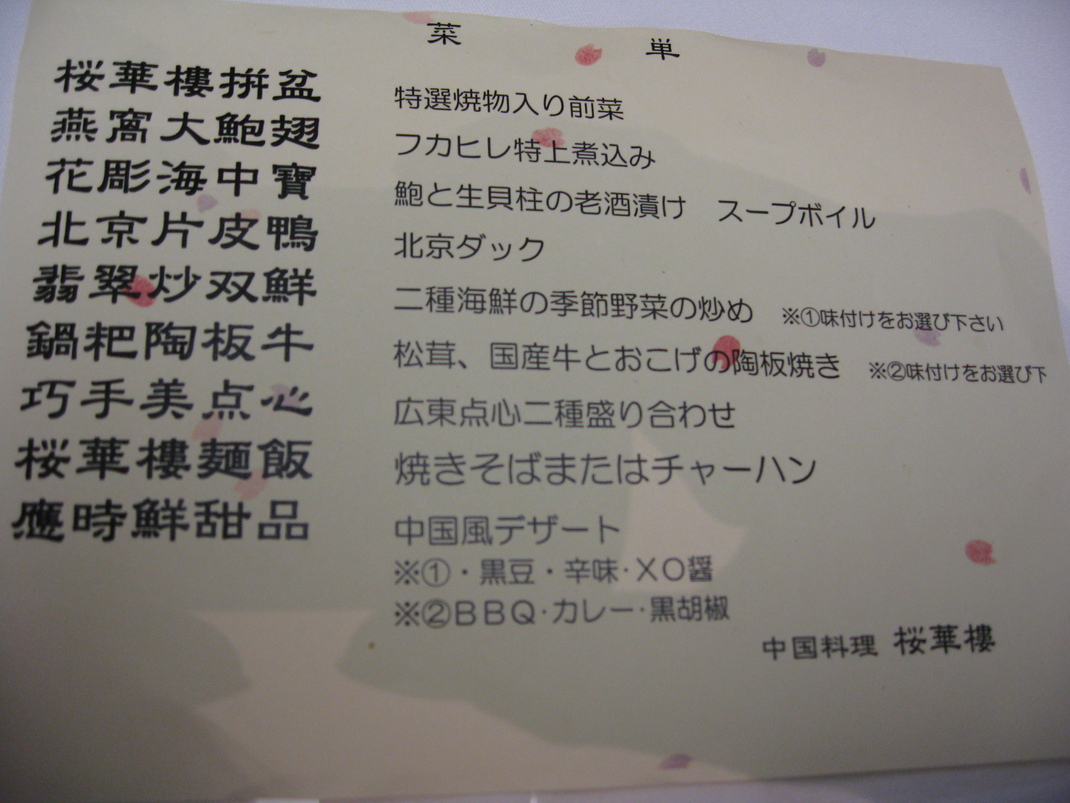 菜単
桜華樓拼盆 特選焼物入り前菜
燕窩大鮑翅 フカヒレ特上煮込み
花彫海中寶 鮑と生貝柱の老酒漬け スープボイル
北京片皮鴨 北京ダック
翡翠炒双鮮 二種海鮮の季節野菜の炒め ※①味付けをお選び下さい
鍋粑陶板牛 松茸、国産牛とおこげの陶板焼き ※②味付けをお選び下
巧手美点心 広東点心二種盛り合わせ
桜華樓麺飯 焼きそばまたはチャーハン
應時鮮甜品 中国風デザート
※①・黒豆・辛味・XO醤
※②BBQ・カレー・黒胡椒
中国料理 桜華樓